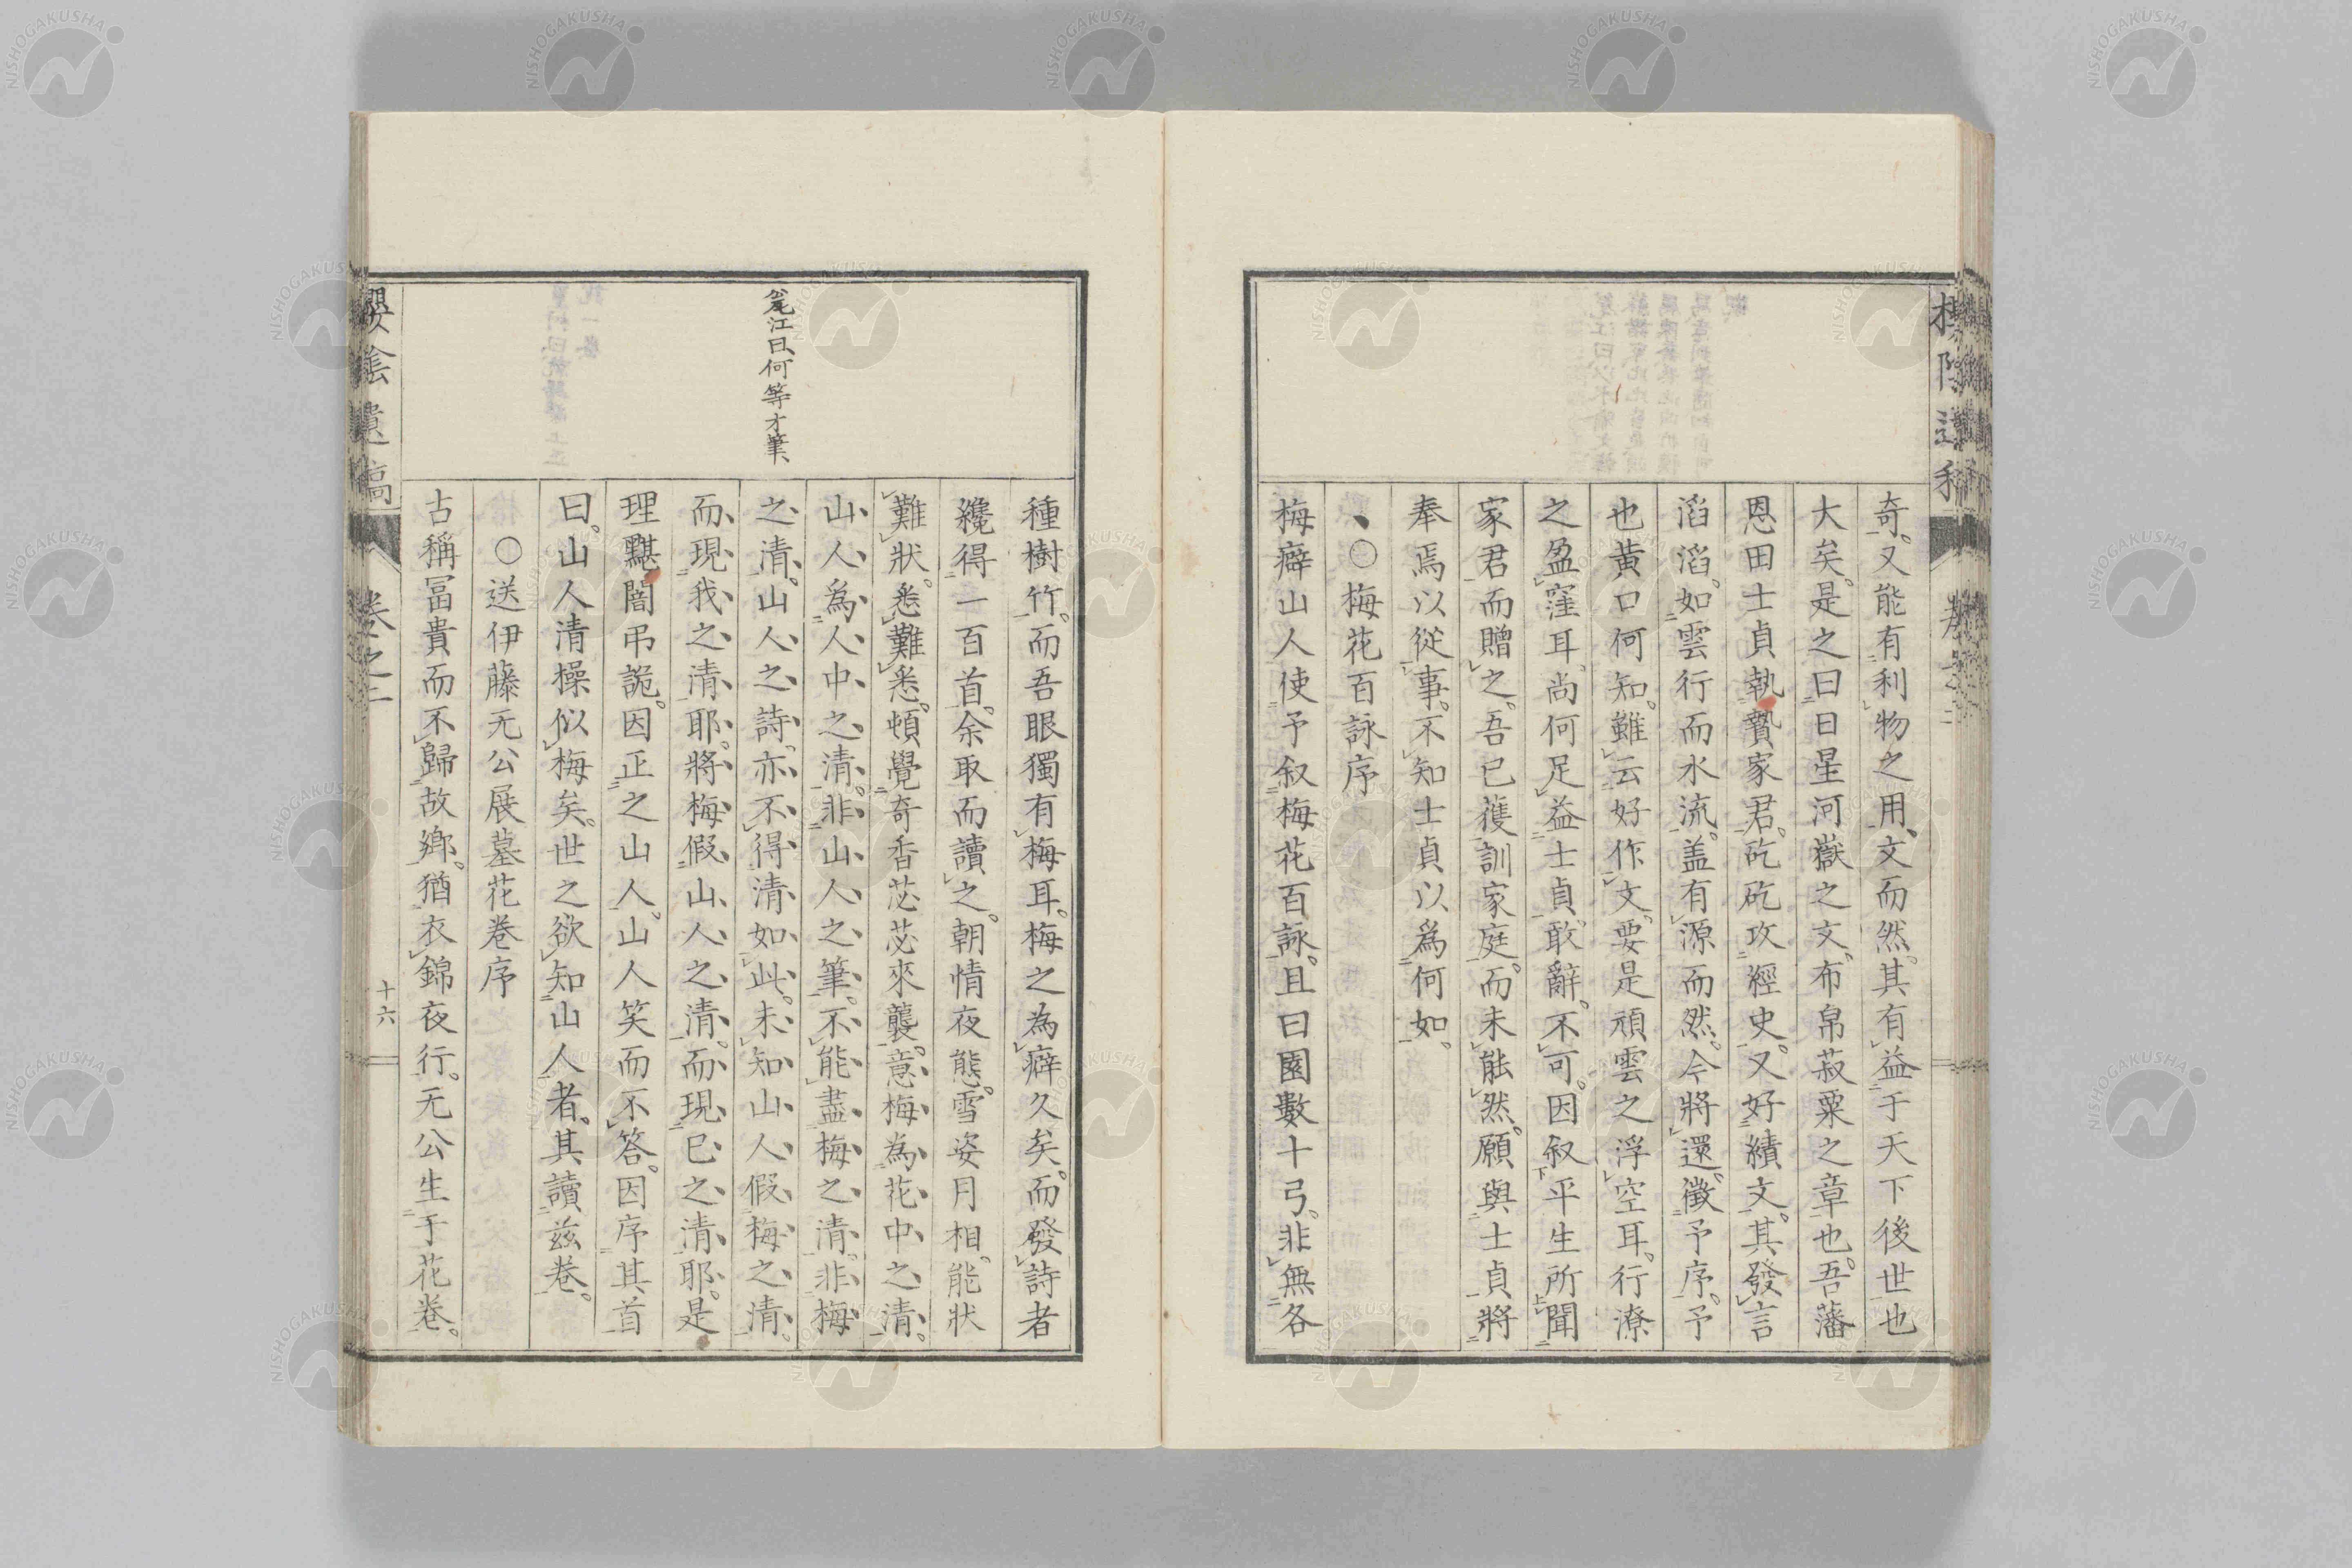 奇。又能有利物之用、文而然。其有益于天下後世也
大矣。是之曰日星河嶽之文、布帛菽粟之章也。吾藩
恩田士貞執贄家君。矻矻攻經史。又好績文。其發言
滔滔。如雲行而水流。盖有源而然。今將還。徵予序。予
也黄口何知。雖云好作文。要是頑雲之浮空耳。行潦
之盈窪耳。尚何足益士貞。敢辭。不可。因叙平生所聞
家君而贈之。吾已蒦訓家庭。而未能然。願與士貞將
奉焉以從事。不知士貞以為何如。
、○梅花百詠序
梅癖山人使予叙梅花百詠。且曰園數十弓。非無各
種樹竹。而吾眼獨有梅耳。梅之為癖久矣。而發詩者
纔得一百首。余取而讀之。朝情夜態。雪姿月相。能狀
難狀。悉難悉。頓覺奇香苾苾來襲。意梅為花中之清。
山人為人中之清。非山人之筆。不能盡梅之清。非梅
之清。山人之詩。亦不得清如此。未知山人假梅之清。
而現我之清耶。將梅假山人之清。而現已之清耶。是
理黮闇弔詭。因正之山人。山人笑而不答。因序其首
曰。山人清操似梅矣。世之欲知山人者、其讀茲卷。
○送伊藤无公展墓花巻序
古稱冨貴而不歸故鄉。猶衣錦夜行。无公生于花巻。
江曰、何等才筆、
櫻陰遺稿
卷之二
十六
NISHOGAKUSHA